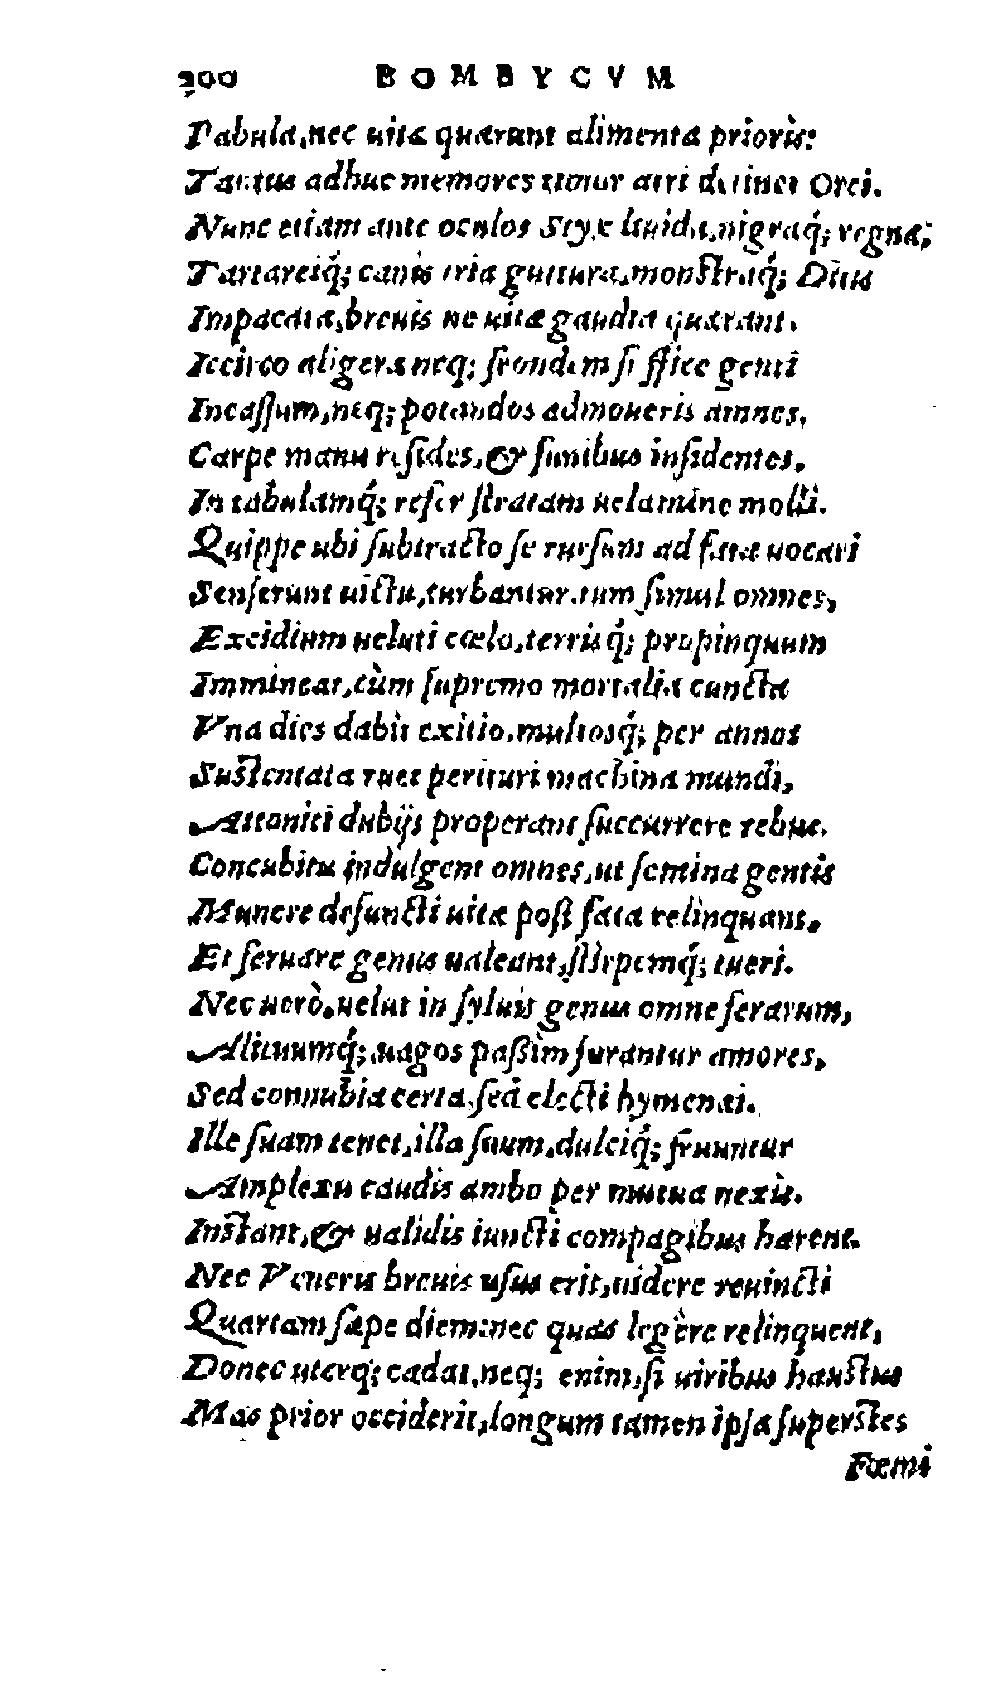 200 BOMBYCVM
Pabula, nec uitæ quærunt alimenta prioris:
Tantus adhuc memores timor atri detinet Orci.
Nunc etiam ante oculos Styx liuida, nigraq́; regna,
Tartareiq́; canis tria guttura, monstraq́; Ditis
Impacata, breuis ne uitæ gaudia quærant.
Iccirco aligeræ neq; frondem sufficæ genti
Incassum, neq; potandos admoueris amnes,
Carpe manu resides, & funibus insidentes,
In tabulamq́; refer stratam uelamine molli.
Quippe ubi subtracto se rursum ad fata uocari
Senserunt uictu, turbantur. tum simul omnes,
Excidium ueluti cœlo, terrisq́; propinquum
Immineat, cùm supremo mortalia cuncta
Vna dies dabit exitio, multosq́; per annos
Sustentata ruet perituri machina mundi,
Attoniti dubijs properant succurrere rebus.
Concubitu indulgent omnes, ut semina gentis
Munere defuncti uitæ post fata relinquant,
Et seruare genus ualeant, stirpemq́; tueri.
Nec uerò, uelut in syluis genus omne ferarum,
Alituumq́;, uagos passim furantur amores,
Sed connubia certa, sed electi hymenæi.
Ille suam tenet, illa suum, dulciq́; fruuntur
Amplexu caudis ambo per mutua nexis.
Instant, & ualidis iuncti compagibus hærent.
Nec Veneris breuis usus erit, uidere reuincti
Quartam sæpe diem: nec quas legêre relinquent,
Donec uterq; cadat, neq; enim, si uiribus haustus
Mas prior occiderit, longum tamen ipsa superstes
Fœmi